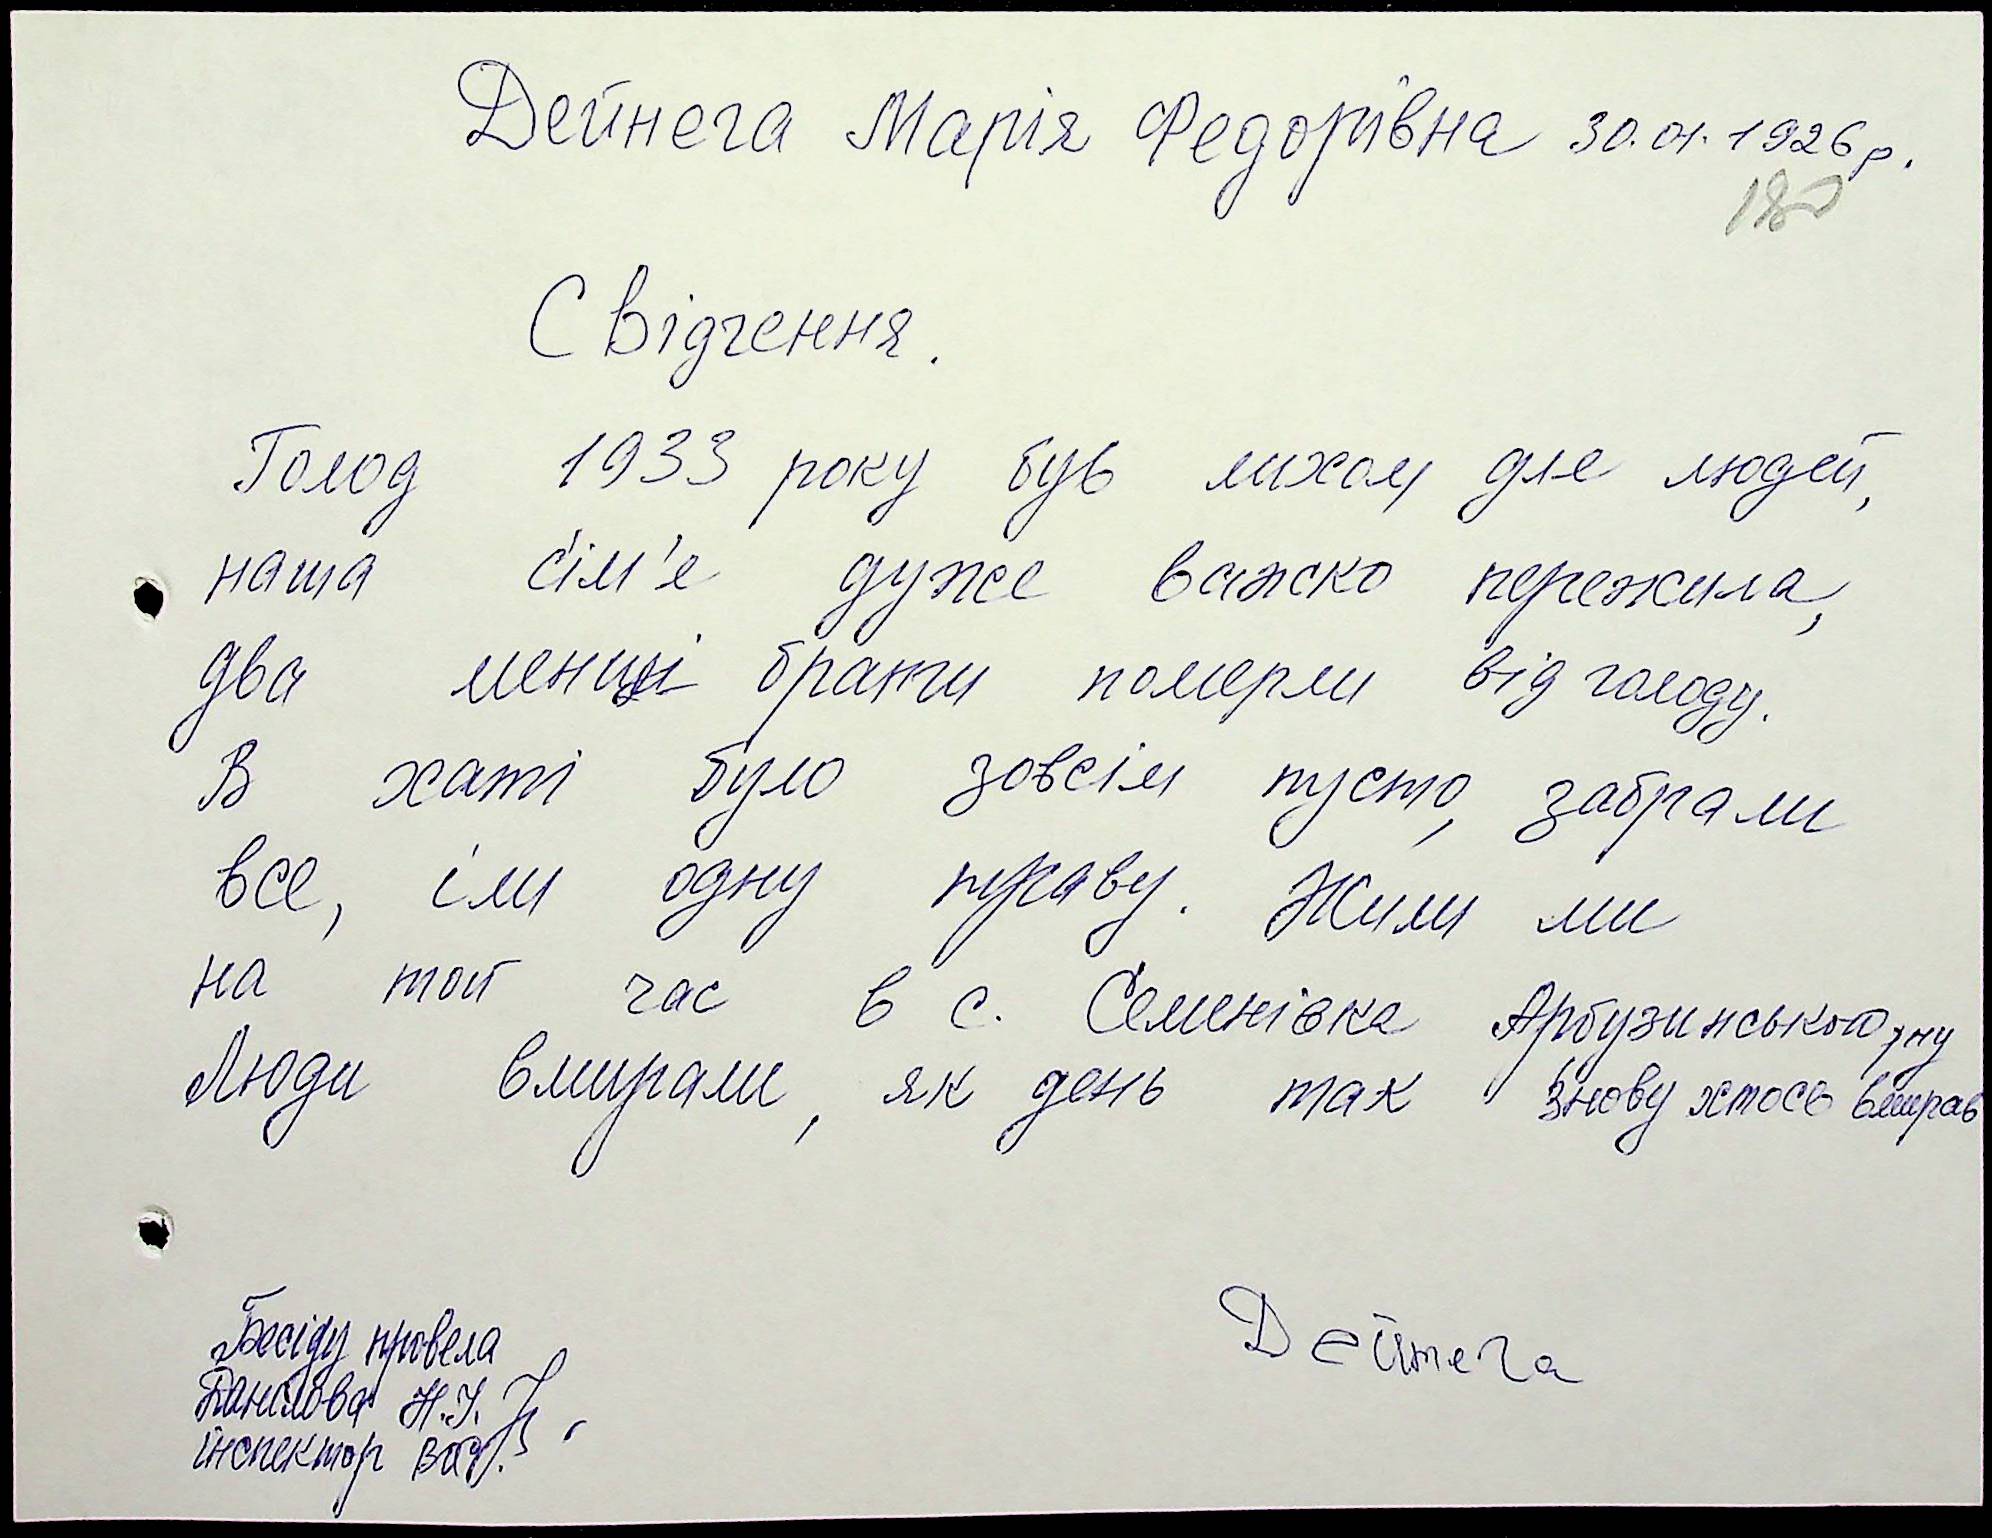 Дейнега Марія Федорівна 30.01.1926р.
180
Свідчення.
Голод 1933 року був лихом для людей,
наша сім'я дуже важко пережила,
два менші брати померли від голоду.
В хаті було зовсім пусто, забрали
все, їли одну траву. Жили ми
на той час в с. Семенівка Арбузинського
Люди вмирали, як день так знову хтось вмирав
Дейнега
Бесіду провела
Данілова Н.І.
інспектор